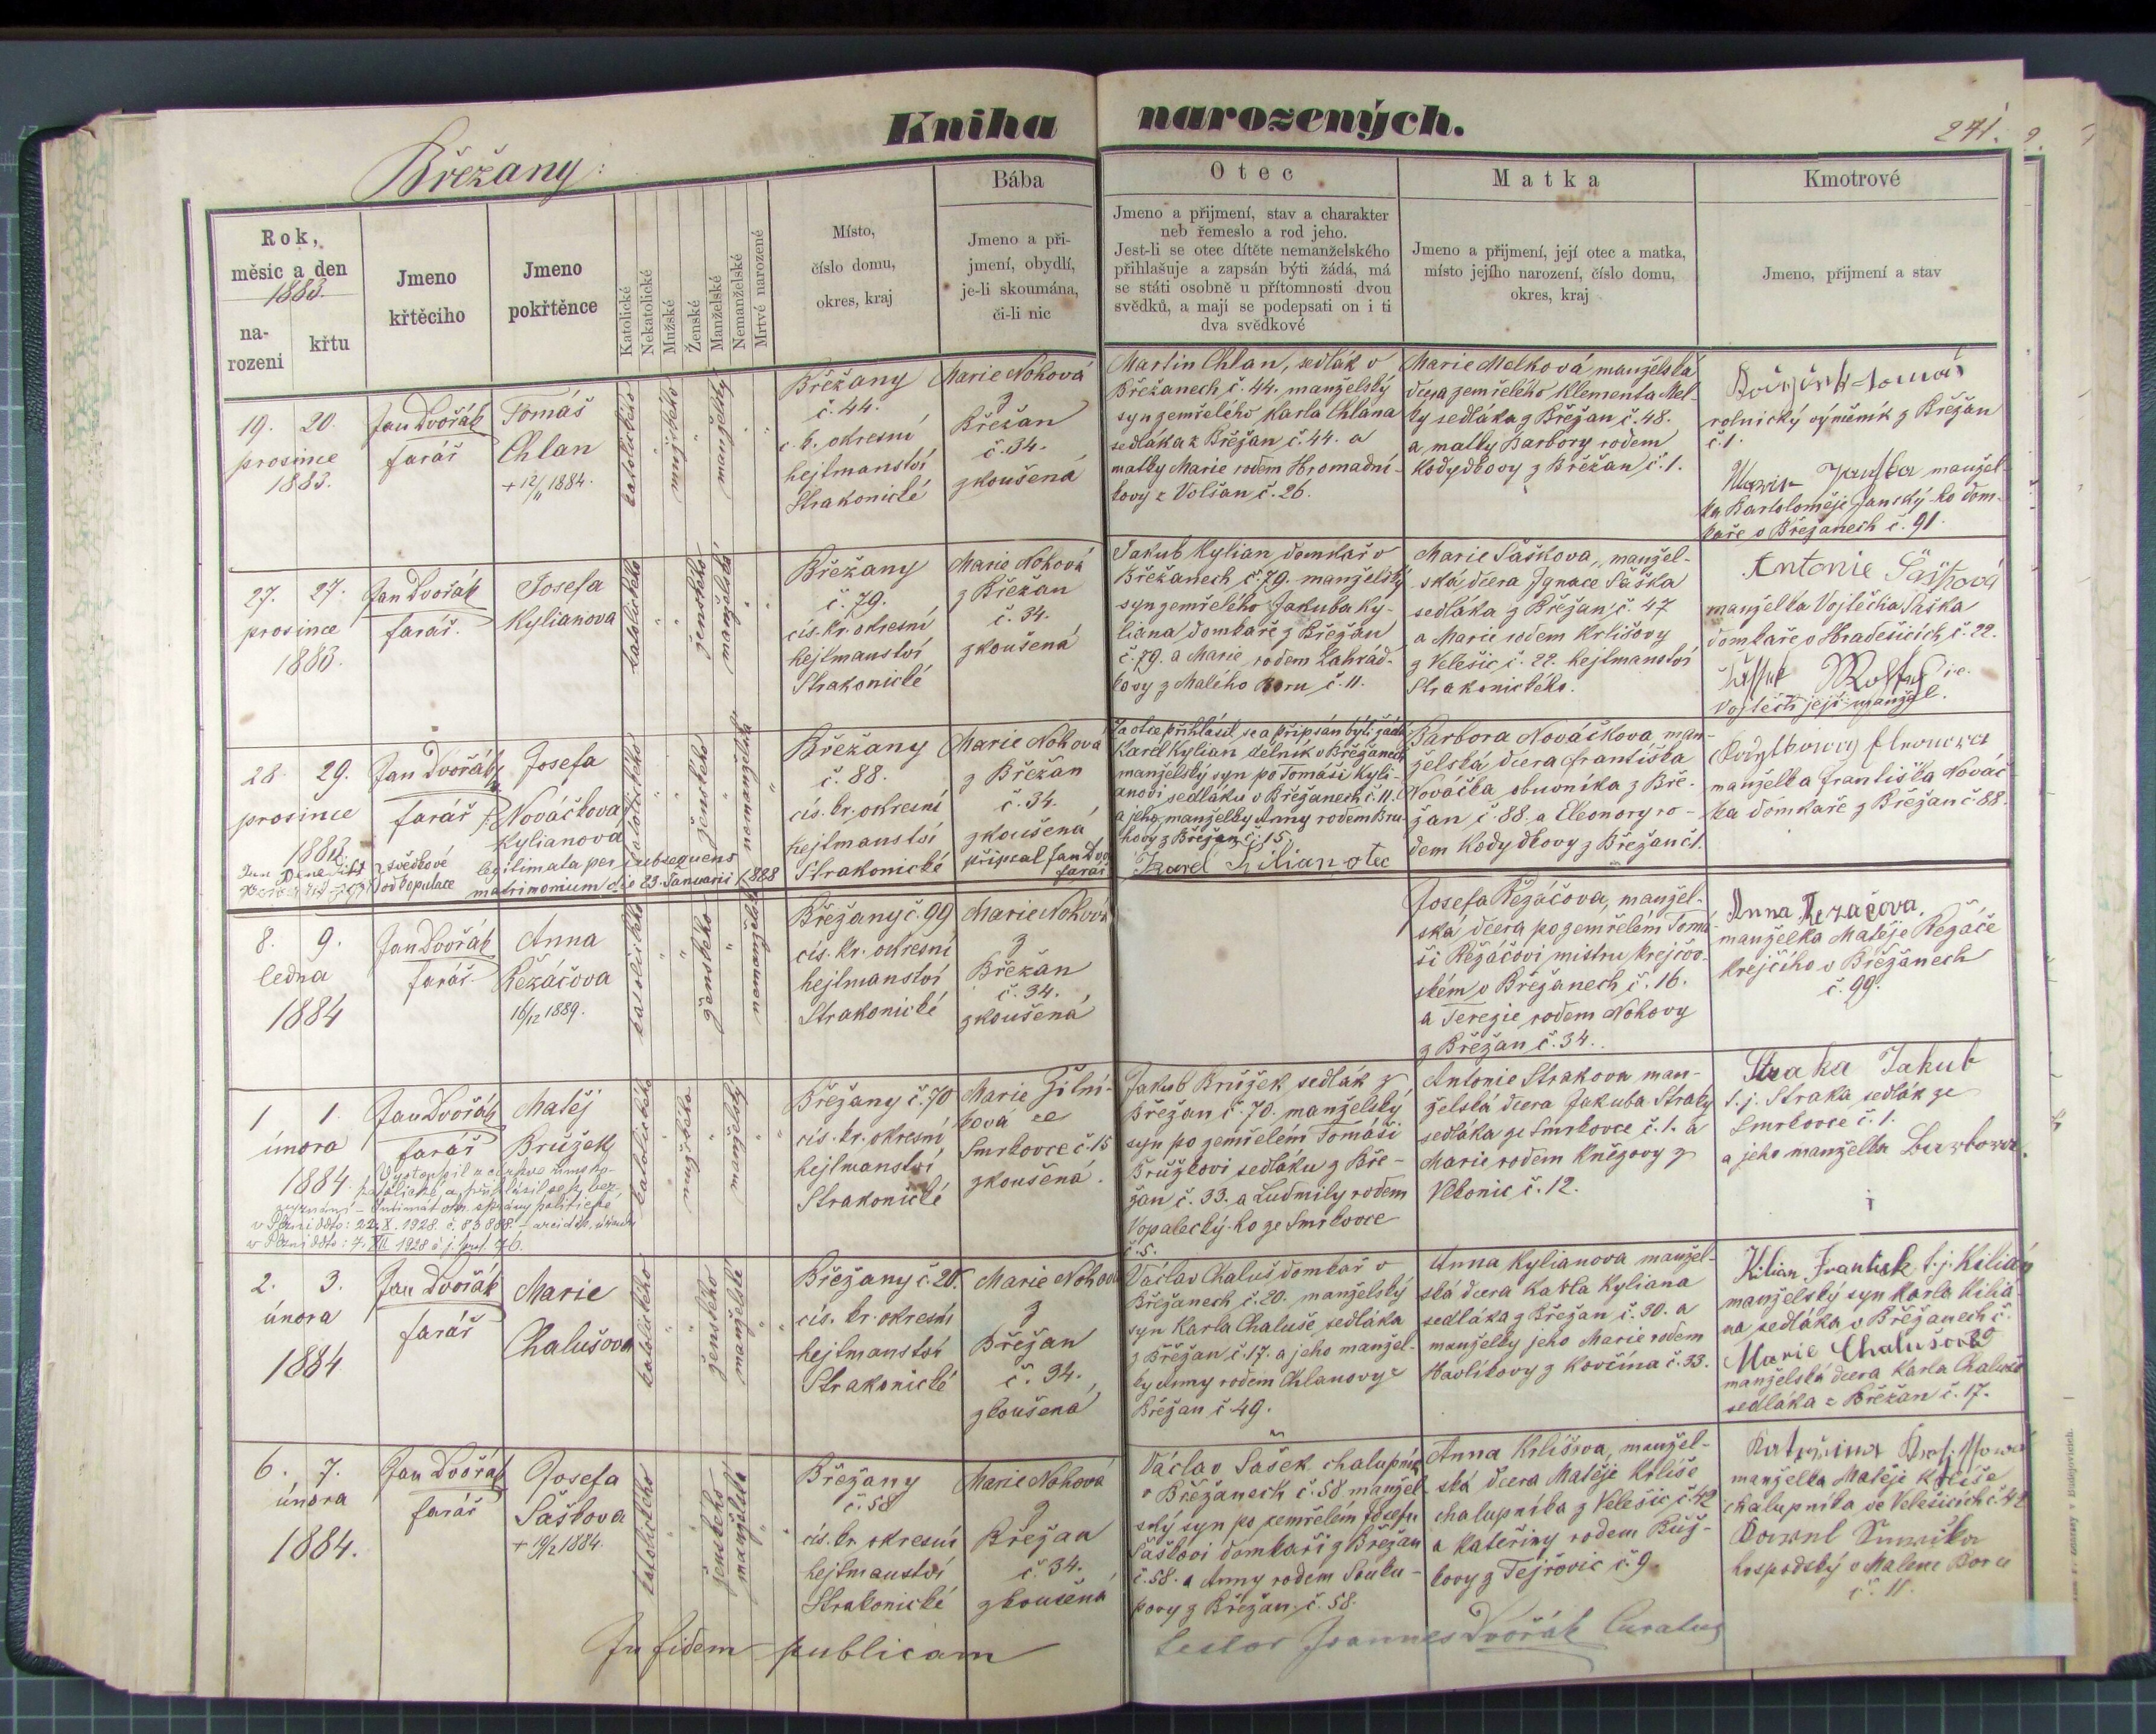 Kniha narozených.
241.
Břežany:
Rok,
měsic a den
1883.
na-
rozeni
křtu
Jmeno
křtěcího
Jmeno
pokřtěnce
Katolické
Nekatolické
Mužské
Ženské
Manželské
Nemanželské
Mrtvé narozené
Místo,
číslo domu,
okres, kraj
Bába
Jmeno a při-
jmení, obydlí,
je-li skoumána,
či-li nic
Otec
Jmeno a přijmení, stav a charakter
neb řemeslo a rod jeho.
Jest-li se otec dítěte nemanželského
přihlašuje a zapsán býti žádá, má
se státi osobně u přítomnosti dvou
svědků, a mají se podepsati on i ti
dva svědkové
Matka
Jmeno a přijmení, její otec a matka,
místo jejího narození, číslo domu,
okres, kraj
Kmotrové
Jmeno, přijmení a stav
19. 20.
prosince
1883.
Jan Dvořák
farář
Tomáš
Chlan
+ 12/11 1884.
katolického
mužského
manželský
Břežany
č. 44.
c. k. okresní
hejtmanství
Strakonické
Marie Nohová
z
Břežan
č. 34.
zkoušená
Martin Chlan, sedlák v
Břežanech č. 44. manželský
syn zemřelého Karla Chlana
sedláka z Břežan č. 44. a
matky Marie rodem Hromadní-
kovy z Volšan č. 26.
Marie Melková manželská
dcera zemřelého Klementa Mel-
ky sedláka z Břežan č. 48.
a matky Barbory rodem
Kodydkovy z Břežan č. 1.
rolnický výměník z Břežan
č. 1.
manžel-
ka Bartoloměje Janský-ho dom-
kaře v Břežanech č. 91.
27. 27.
prosince
1883.
Jan Dvořák
farář.
Josefa
Kylianova
katolického
ženského
manželská
Břežany
č. 79.
cís. kr. okresní
hejtmanství
Strakonické
Marie Nohová
z Břežan
č. 34.
zkoušená
Jakub Kylian domkář v
Břežanech č. 79. manželský
syn zemřelého Jakuba Ky-
liana domkaře z Břežan
č. 79. a Marie rodem Zahrád-
kovy z Malého Boru č. 11.
Marie Šaškova, manžel-
ská dcera Ignace Šaška
sedláka z Břežan č. 47
a Marie rodem Krlišovy
z Velešic č. 22. hejtmanství
Strakonického.
Antonie Šašková
manželka Vojtěcha Šaška
domkaře v Hradešicích č. 22.
Vojtěch její manžel.
28. 29.
prosince
1883.
Jan Dvořák
farář
Josefa
Nováčkova
Kylianová
svědkové
od kopulace
legitimata per subsequens
matrimonium die 23. Januarii 1888
katolického
ženského
nemanželská
Břežany
č. 88.
cís. kr. okresní
hejtmanství
Strakonické
Marie Nohova
z Břežan
č. 34.
zkoušená
připsal Jan Dvoř
farář
Za otce přihlásil se a připsán býti žádá
Karel Kylian dělník v Břežanech
manželský syn po Tomáši Kyli-
anovi sedláku v Břežanech č. 11.
a jeho manželky Anny rodem Bru-
hovy z Břežan č. 15.
Karel Kilian otec
Barbora Nováčkova man-
želská dcera Františka
Nováčka obuvníka z Bře-
žan č. 88. a Eleonory ro-
dem Kodydkovy z Břežan č. 1.
manželka Františka Nováč-
ka domkaře z Břežan č. 88.
8. 9.
ledna
1884
Jan Dvořák
farář.
Anna
Řežáčova
16/12 1889.
katolického
ženského
nemanželská
Břežany č. 99
cís. kr. okresní
hejtmanství
Strakonické
Marie Nohová
z
Břežan
č. 34.
zkoušená
Josefa Řezáčova, manžel-
ská dcera po zemřelém Tomá-
ši Řezáčovi mistru krejčov-
ském v Břežanech č. 16.
a Terezie rodem Nohovy
z Břežan č. 34.
Anna Řezačova
manželka Matěje Řezáče
krejčího v Břežanech
č. 99.
1 1.
února
1884.
Jan Dvořák
farář
Matěj
Brůžek
Vystoupil z církve římsko-
katolické, a přihlásil se k bez-
vyznání – Intimát okr. správy politické
v Plzni ddto: 22. X. 1928. č. 83888
v Plzni ddto: 7. XII. 1928 č. j. 76.
katolického
mužského
manželský
Břežany č. 70
cís. kr. okresní
hejtmanství
Strakonické
Marie Žilni-
ková ze
Smrkovce č. 15
zkoušená.
Jakub Brůžek sedlák z
Břežan č. 70. manželský
syn po zemřelém Tomáši
Brůžkovi sedláku z Bře-
žan č. 33. a Ludmily rodem
Vopalecký-ho ze Smrkovce
č. 5.
Antonie Strakova man-
želská dcera Jakuba Straky
sedláka ze Smrkovce č. 1. a
Marie rodem Kněžovy z
Vekonic č. 12.
Straka Jakub
t. j. Straka sedlák ze
Smrkovce č. 1.
a jeho manželka
2. 3.
února
1884
Jan Dvořák
farář
Marie
Chalušova
katolického
ženského
manželské
Břežany č. 20.
cís. kr. okresní
hejtmanství
Strakonické
Marie Nohová
z
Břežan
č. 34.
zkoušená
Václav Chaluš domkář v
Břežanech č. 20. manželský
syn Karla Chaluše sedláka
z Břežan č. 17. a jeho manžel-
ky Anny rodem Chlanovy z
Břežan č. 49.
Anna Kylianova manžel-
ská dcera Karla Kyliana
sedláka z Břežan č. 90. a
manželky jeho Marie rodem
Havlíkovy z Kovčína č. 33.
Kilian Frantisek t. j. Kilian
manželský syn Karla Kilia-
na sedláka v Břežanech č.
Marie Chalušova
manželská dcera Karla Chaluše
sedláka z Břežan č. 17.
6. 7.
února
1884.
Jan Dvořák
farář
Josefa
Šaškova
+ 19/2 1884.
katolického
ženského
manželská
Břežany
č. 58
cís. kr. okresní
hejtmanství
Strakonické
Marie Nohová
z
Břežan
č. 34.
zkoušená
Václav Šašek chalupník
v Břežanech č. 58 manžel-
ský syn po zemřelém Josefu
Šaškovi domkáři z Břežan
č. 58. a Anny rodem Souku-
povy z Břežan č. 58.
Anna Krlišova, manžel-
ská dcera Matěje Krliše
chalupníka z Velešic č. 42
a Kateřiny rodem Růž-
kovy z Tejřovic č. 9
manželka Matěje Krliše
chalupníka ve Velešicích č. 42
hospodský v Malém Boru
č. 11.
In fidem publicam
testor Joannes Dvořák Curatus